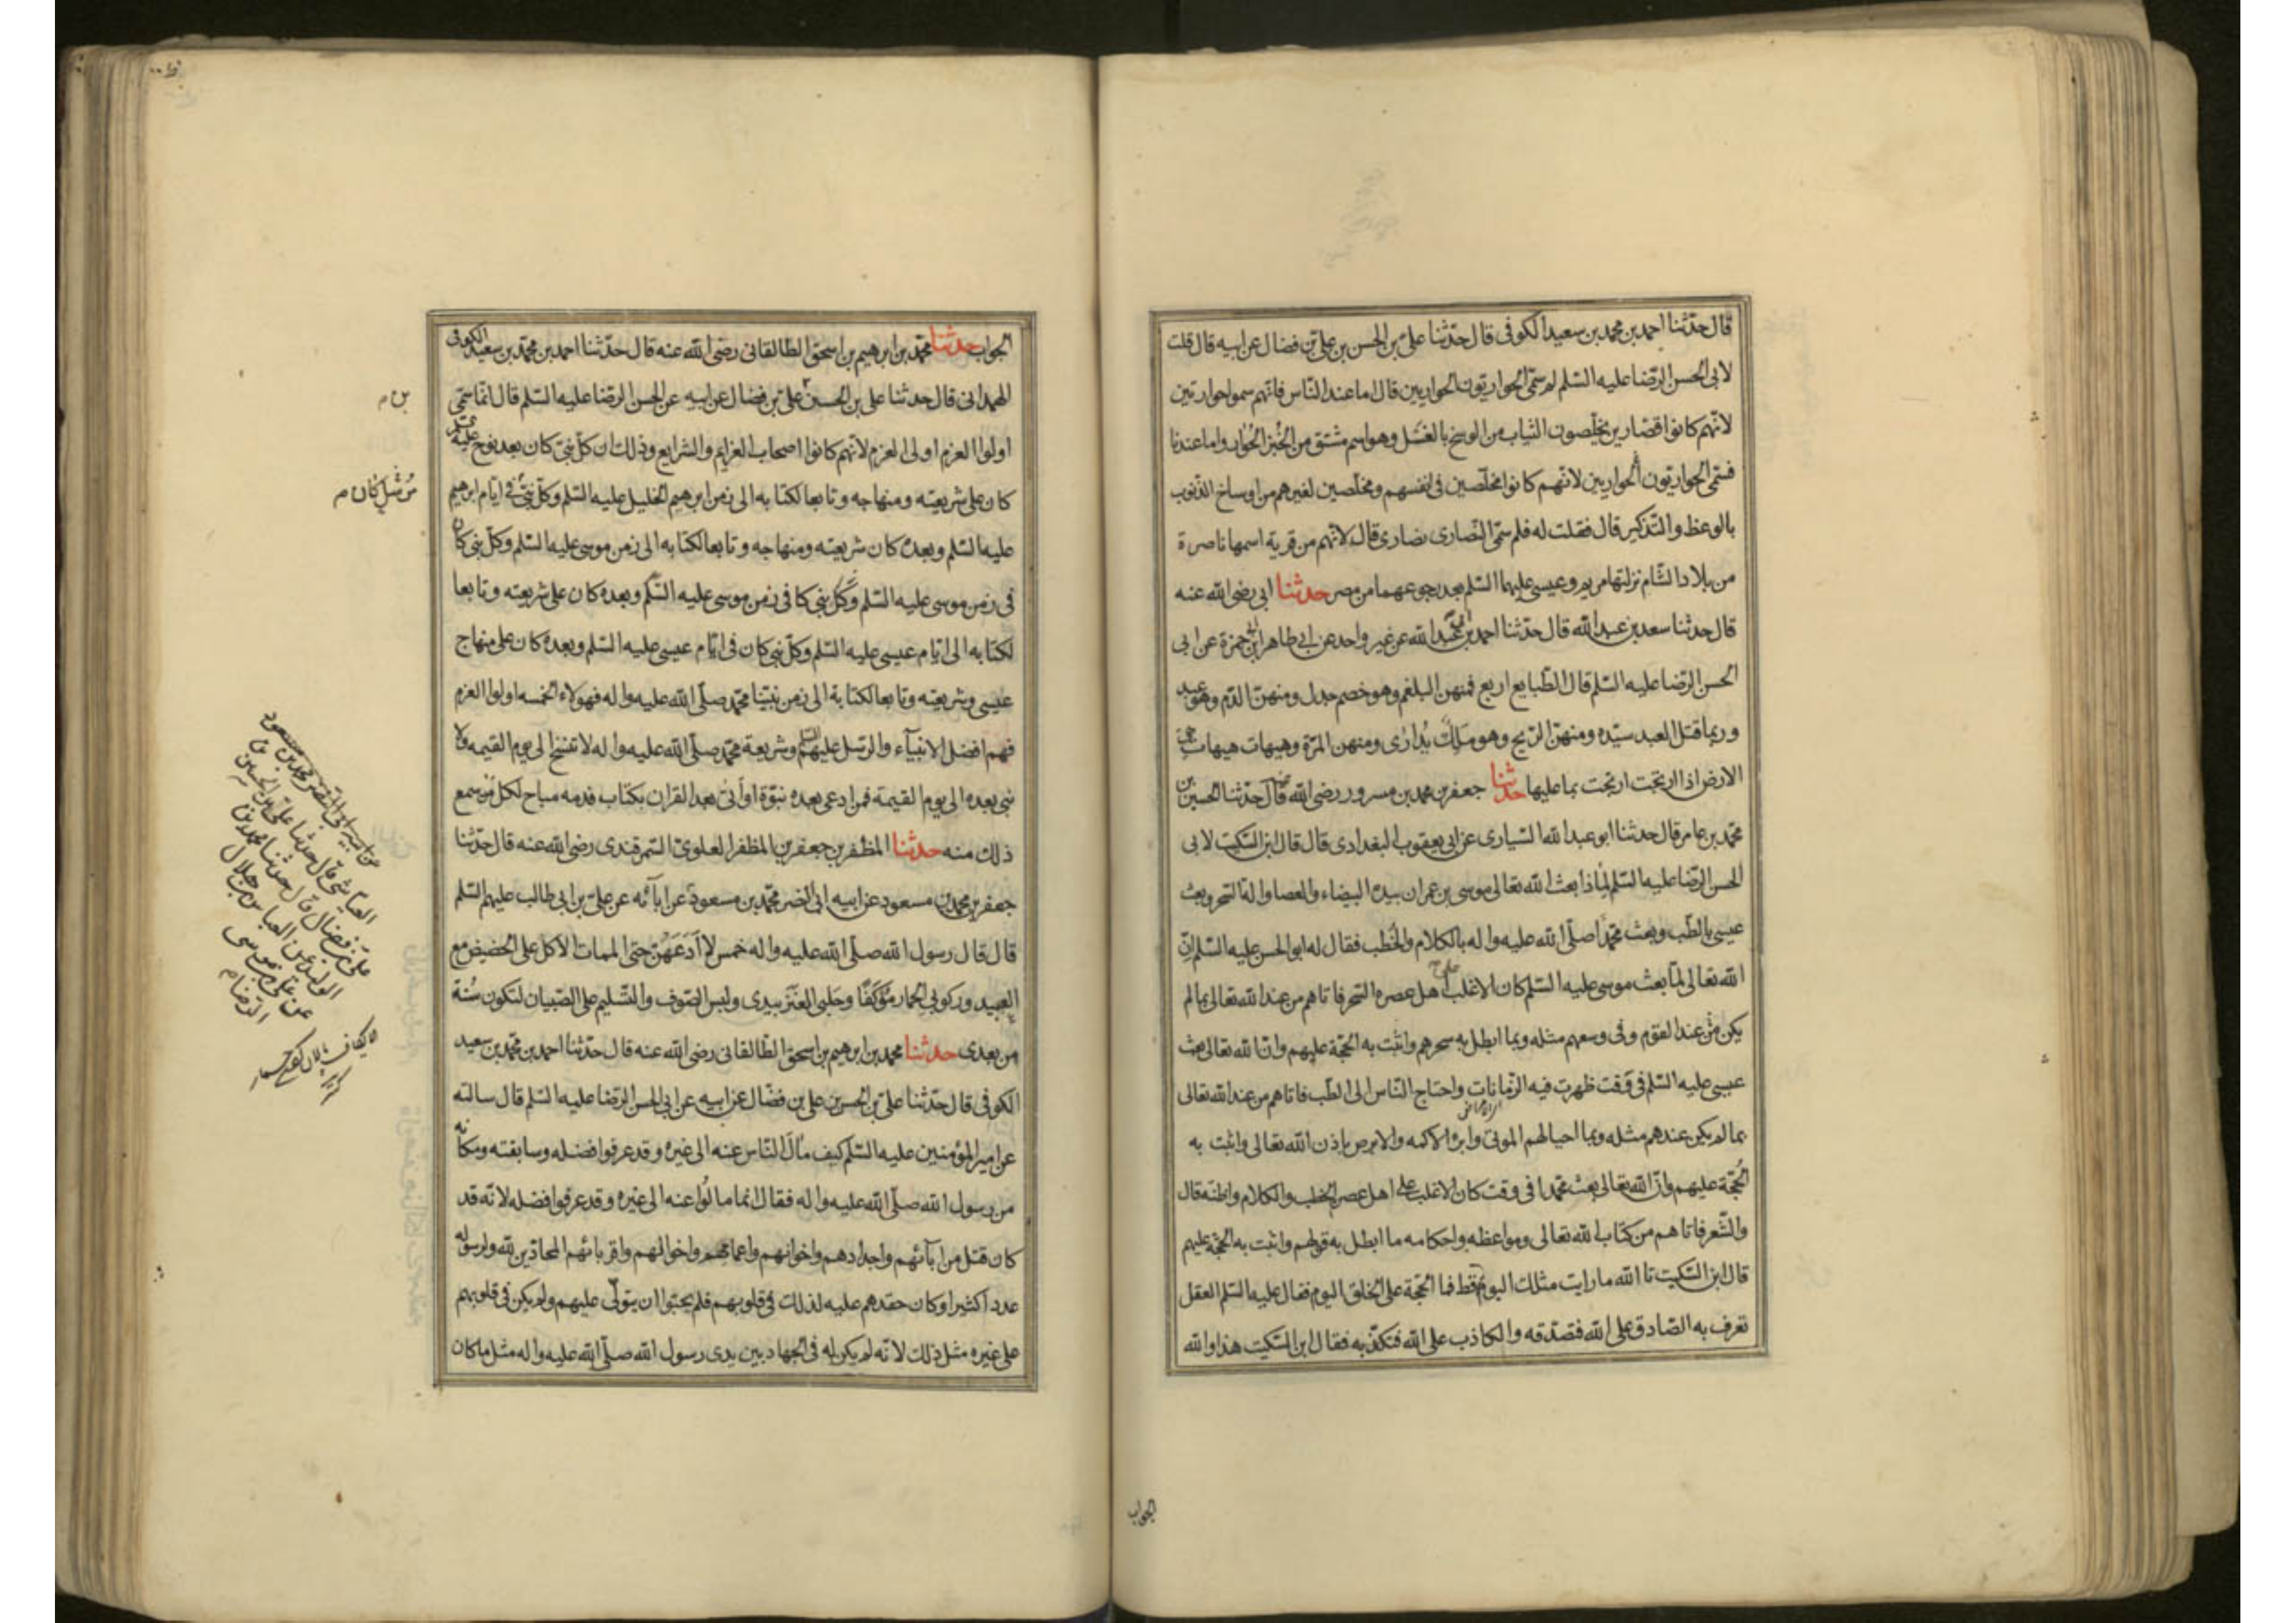 قال حدّثنا احمد بن محمد بن سعيد الكوفى قال حدّثنا علىّ بن الحسن بن علىّ بن فضال عن ابيه قال قلت
لابى الحسن الرّضا عليه السّلم لم سمّى الحواريّون الحواريين قال اما عند النّاس فانّهم سموا حواريّين
لانّهم كانوا قصّارين يخلّصون الثياب من الوسخ بالغسل وهو اسم مشتق من الخبز الحوّار واما عندنا
فسمّى الحواريّون الحواريين لانّهم كانوا مخلّصين فى انفسهم ومخلّصين لغيرهم من اوساخ الذّنوب
بالوعظ والتّذكير قال فقلت له فلم سمّى النّصارى نصارى قال لانّهم من قرية اسمها ناصرة
من بلاد الشّام نزلتها مريم وعيسى عليهما السّلم بعد رجوعهما من مصر حدثنا ابى رضى الله عنه
قال حدثنا سعد بن عبد الله قال حدّثنا احمد بن ابى عبد الله عن غير واحد عن ابى طاهر بن ابى حمزة عن ابى
الحسن الرّضا عليه السّلم قال الطّبايع اربع فمنهن البلغم وهو خصم جدل ومنهنّ الدّم وهو عبد
وربما قتل العبد سيّده ومنهنّ الرّيح وهو ملك يُدارى ومنهن المرّة وهيهات هيهات هى
الارض اذا ارتجت ارتجت بما عليها حدثنا جعفر بن محمد بن مسرور رضى الله عنه قال حدّثنا الحسين بن
محمّد بن عامر قال حدثنا ابو عبد الله السّيارى عن ابى يعقوب البغدادى قال قال ابن السّكيت لابى
الحسن الرّضا عليه السّلم لماذا بعث الله تعالى موسى بن عمران بيده البيضاء والعصا والة السّحر وبعث
عيسى بالطّب وبعث محمّدا صلّى الله عليه واله بالكلام والخطب فقال له ابو الحسن عليه السّلم انّ
الله تعالى لمّا بعث موسى عليه السّلم كان الاغلب على اهل عصره السّحر فاتاهم من عند الله تعالى بما لم
يكن من عند القوم وفى وسعهم مثله وبما ابطل به سحرهم واثبت به الحجّة عليهم وانّ الله تعالى بعث
عيسى عليه السّلم فى وقت ظهرت فيه الزّمانات واحتاج النّاس الى الطّب فاتاهم من عند الله تعالى
بما لم يكن عندهم مثله وبما احيا لهم الموتى وابرء الاكمه والابرص باذن الله تعالى واثبت به
الحُجّة عليهم وانّ الله تعالى بعث محمّدا فى وقت كان الاغلب على اهل عصره الخطب والكلام واظنّه قال
والشّعر فاتاهم من كتاب الله تعالى ومواعظه واحكامه ما ابطل به قولهم واثبت به الحجّة عليهم
قال ابن السّكيت تا الله ما رايت مثلك اليوم قط فما الحجّة على الخلق اليوم فقال عليه السّلم العقل
تعرف به الصّادق على الله فتصدّقه والكاذب على الله فتكذّبه فقال ابن السّكيت هذا والله
الجواب
الجواب حدثنا محمّد بن ابرهيم بن اسحق الطالقانى رضى الله عنه قال حدّثنا احمد بن محمّد بن سعيد الكوفى
الهمدانى قال حدثنا على بن الحسين علىّ بن فضال عن ابيه عن الحسن الرّضا عليه السّلم قال انّما سمّى
بن م
اولوا العزم اولى العزم لانّهم كانوا اصحاب العزايم والشرايع وذلك ان كلّ نبىّ كان بعد نوح عليه
كان على شريعته ومنهاجه وتابعا لكتابه الى زمن ابرهيم الخليل عليه السّلم وكلّ نبىّ فى ايّام ابرهيم
عليه السّلم وبعده كان شريعته ومنهاجه وتابعا لكتابه الى زمن موسى عليه السّلم وكلّ نبى كان
فى زمن موسى عليه السّلم وكلّ نبى كا فى زمن موسى عليه السّلم وبعده كان على شريعته وتابعا
لكتابه الى ايّام عيسى عليه السّلم وكلّ نبى كان فى ايّام عيسى عليه السّلم وبعده كان على منهاج
عيسى وشريعته وتابعا لكتابه الى زمن نبيّنا محمّد صلّى الله عليه واله فهولاء الخمسه اولوا العزم
فهم افضل الانبيآء والرّسل عليهم السلم وشريعة محمّد صلّى الله عليه واله لا تنسخ الى يوم القيمه ولا
نبى بعده الى يوم القيمة فمن ادعى بعده نبوّة او أتى بعد القران بكتاب فدمه مباح لكل من سمع
ذلك منه حدثنا المظفر بن جعفر بن المظفر العلوىّ السّمرقندى رضى الله عنه قال حدّثنا
جعفر بن محمد بن مسعود عن ابيه ابى النضر محمّد بن مسعود عن ابآئه عن علىّ بن ابى طالب عليهم السّلم
قال قال رسول الله صلّى الله عليه واله خمس لا أدَعَهُنّ حتى الممات الاكل على الحضيض مع
العبيد وركوبى الحمار مؤكفًا وحلبى العنز بيدى ولبس الصّوف والتّسليم على الصّبيان لتكون سُنة
من بعدى حدثنا محمد بن ابرهيم بن اسحق الطّالقانى رضى الله عنه قال حدّثنا احمد بن محمّد بن سعيد
الكوفى قال حدّثنا علىّ بن الحسن بن على بن فضّال عن ابيه عن ابى الحسن الرّضا عليه السّلم قال سالته
عن امير المؤمنين عليه السّلم كيف مال النّاس عنه الى غيره وقد عرفوا فضله وسابقته ومكانه
من رسول الله صلّى الله عليه واله فقال انما مالوا عنه الى غيره وقد عرفوا فضله لانّه قد
كان قتل من ابآئهم واجدادهم واخوانهم واعمامهم واخوالهم واقربائهم المحادّين لله ولرسوله
عددا كثيرا وكان حقدهم عليه لذلك فى قلوبهم فلم يحبّوا ان يتولّى عليهم ولم يكن فى قلوبهم
على غيره مثل ذلك لانّه لم يكن له فى الجهاد بين يدى رسول الله صلّى الله عليه واله مثل ما كان
عن ابيه ابى النّضر محمّد بن مسعود
العيّاشى قال حدثنا علىّ بن الحسن بن
علىّ بن فضال قال حدثنا محمّد بن
الوليد عن العباس بن هلال
عن على بن موسى
الرّضا م